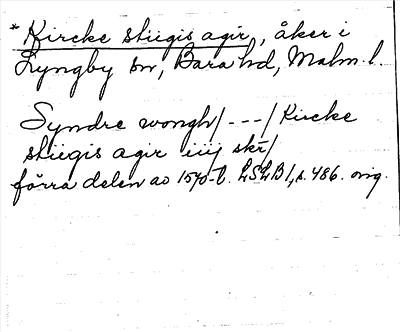 * Kircke stiigis agir, åker i
Lyngby sn, Bara hd, Malm. l.
Syndre wongh/---/Kircke
stiigis agir iiij skr/
förra delen av 1570-t. LSLB I, s. 486. orig.